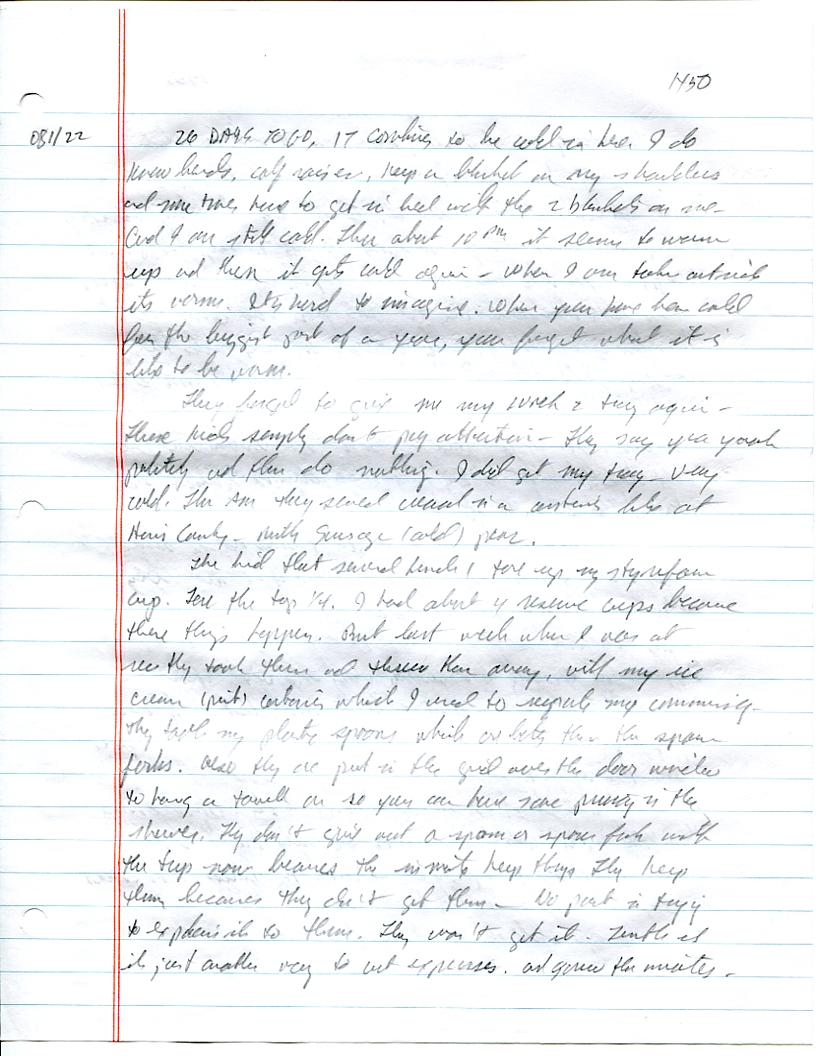 1450
08/1/22 26 DAYS TO GO, IT continues to be cold in here I do
knee bends, calf raises, keep a blanket on my shoulders
and some times have to get in bed with the 2 blankets on me -
And I am still cold. Then about 10 pm it seems to warm
up and then it gets cold again - When I am taken outside
its warm. Its hard to imagine. When you have been cold
for the biggest part of a year, you forget what it is
like to be warm.
They forgot to give me my tray again -
These kids simply don't pay attention - They say yea yeah
politely and then do nothing. I did get my tray - very
cold. This AM they served cereal in a like at
Harris County - with Sausage (cold) pear.
The kid that served lunch tore up my styrofoam
cup. Tore the top 1/4. I had about 4 reserve cups because
these things happen. But last week when I was at
rec they took them and threw them away, with my ice
cream (pint) containers which I used to my commissary -
They took my plastic spoons which are better than the spoon
forks. Also they are put in the grid over the door window
to hang a towel on so you can have some privacy in the
shower. They don't give out a spoon or spoon fork with
the trays now because the inmates keep things They keep
them because they don't get them - No point in trying
to explain it to them. They won't get it - Truth is
its just another way to cut expenses. and the inmates -